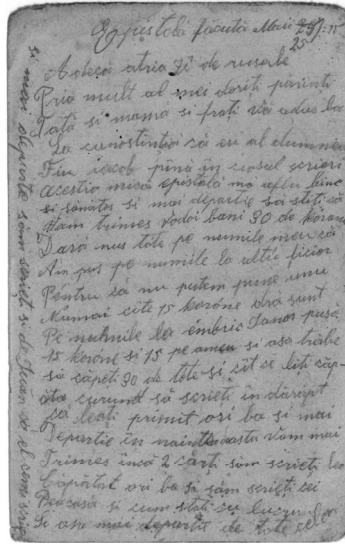 Epistolă făcută Maii 25
Adusă atria zi de rusale
Pria mult al mei doriti parinti
Tată si mama si frati vă aduc la
la cunostintia că eu al dumnea
Fiu iacob pină in ciasul scriori
Acestia mică epistolă ma aflu bine
si sănătos si mai departie să stiți că
Vam trimes vodoi bani 30 de korone
Dară nus tote pe numile meu că
Am pus pe numiile la altu ficior
Pĕntru că nu putem pune unu
Numai cite 15 korŏne dră sunt
Pe numile lui embric Ianos pusă
15 korone si 15 pe ameu si asa trăbe
să căpet 30 de tote si cit ce liti căp-
ăta curund să scrieti in dărăpt
că leati primit ori ba si mai
Departie in naintea asta vam mai
Trimes incă 2 cărti som scrieti le
Căpătat ori ba si săm scrieti cei
Peacasă si cum stati cu lucrurile
Si asa mai departii de tote
si mai departe săm scrieti si de Iuăn că el cum